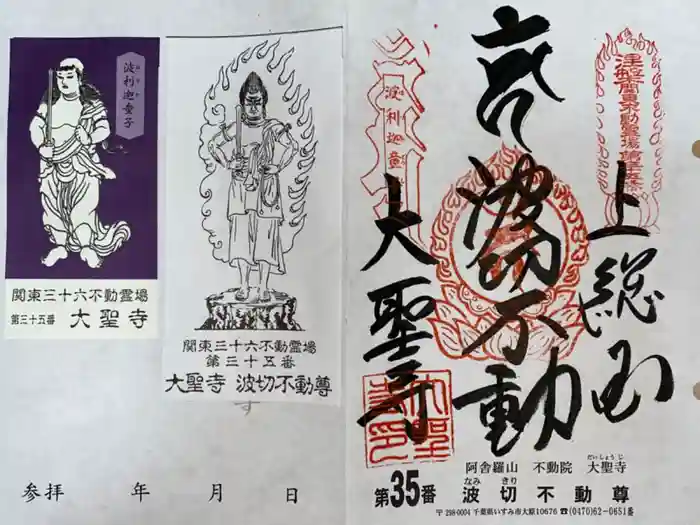 波利迦童子
関東三十六不動霊場
第三十五番 大聖寺
関東三十六不動霊場
第三十五番
大聖寺 波切不動尊
参拝 年 月 日
上総国
波切不動
大聖寺
波利迦童
阿舎羅山 不動院 大聖寺
だいしょうじ
第35番 波切不動尊
なみ きり
〒298-0004 千葉県いすみ市大原10676 ☎(0470)62-0651番